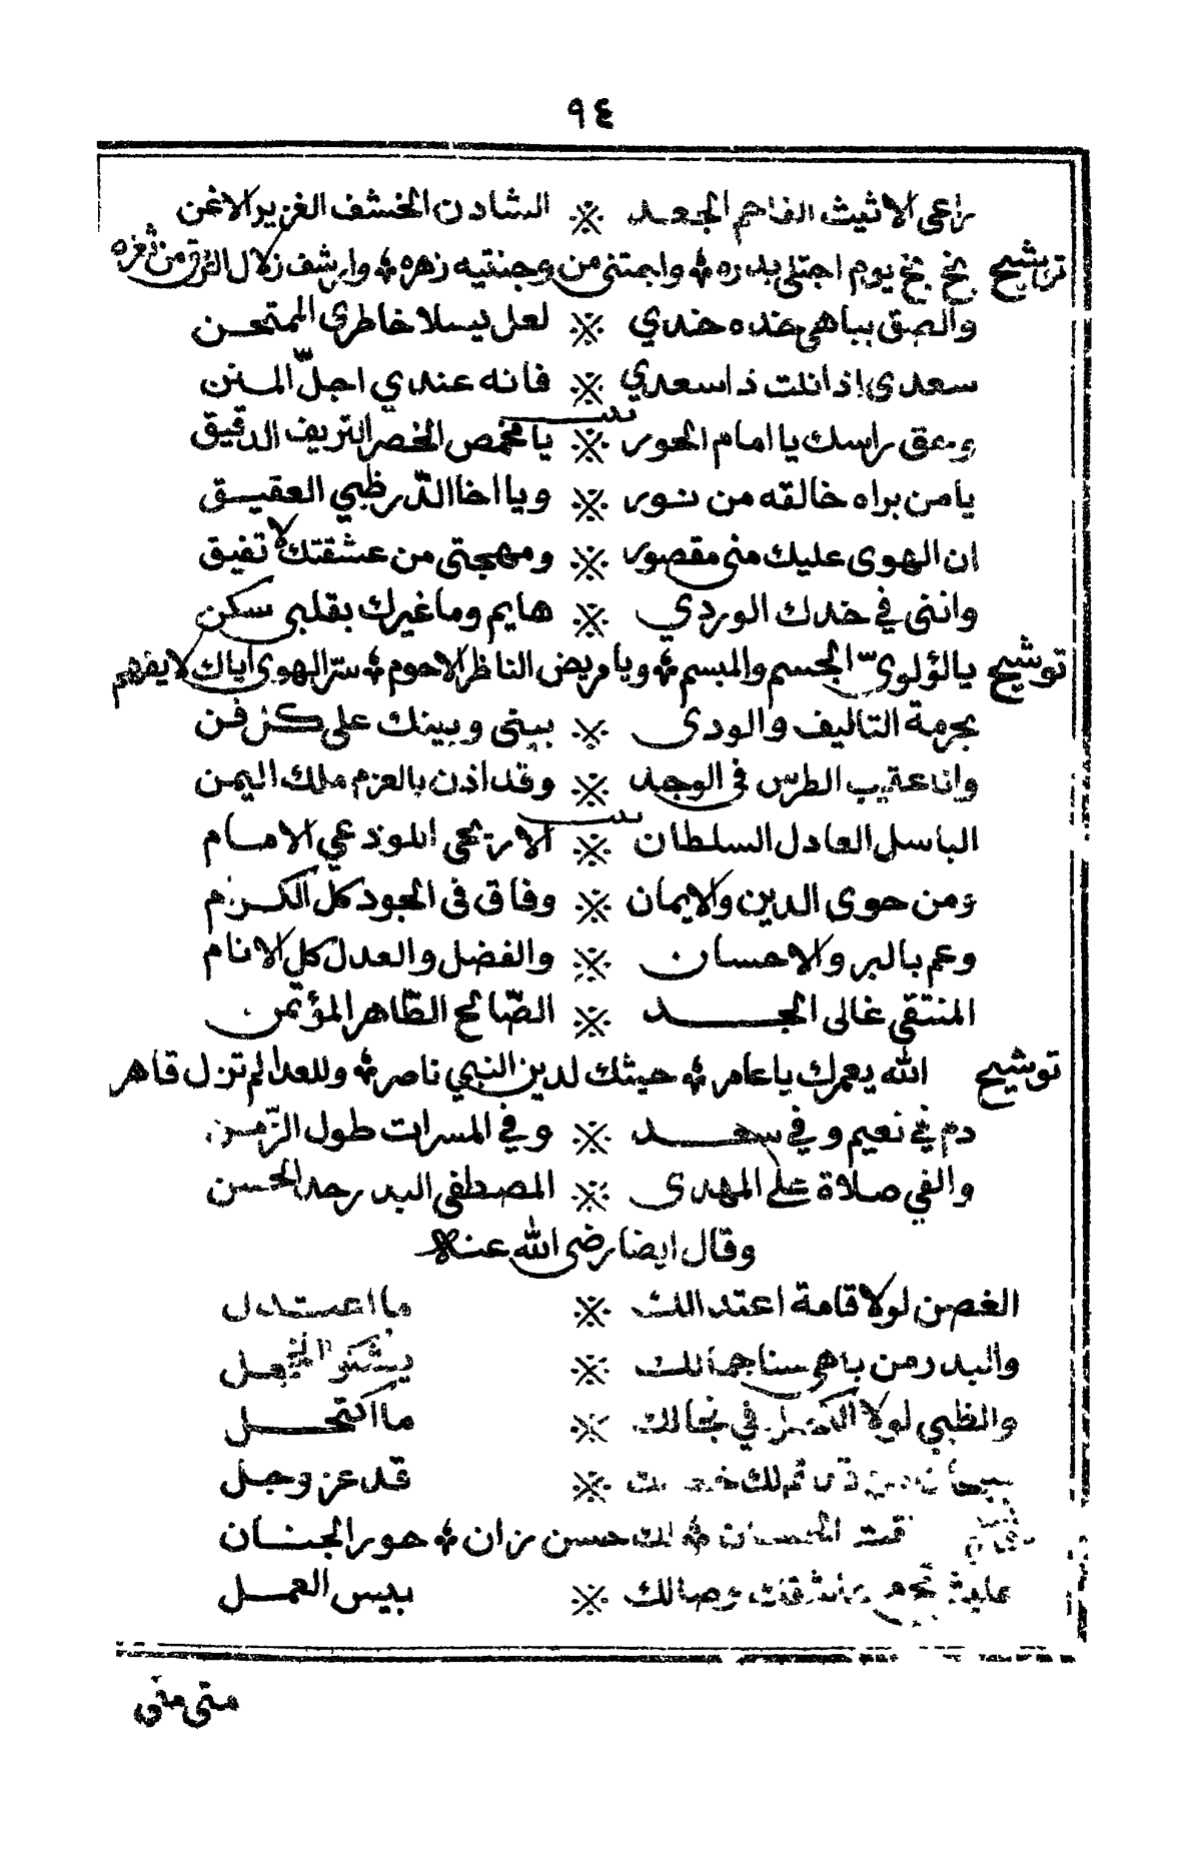 ٩٤
راعى الاثيث الفاحم الجعد ※ الشادن الخشف الغرير الاغن
توشيح بخ بخ يوم اجتلى بدره ※ واجتنى من وجنتيه زهره ※ وارشف زلال الرّيق من ثغره
والصق بباهى خده خدي ※ لعل يسلا خاطري الممتحن
سعدى اذا نلت ذا سعدي ※ فانه عندي اجلّ المنن
بيت
وحق راسك يا امام الحور ※ يا مخمص الخصر التريف الدقيق
يا من براه خالقه من نور ※ ويا اخا الدّر ظبي العقيق
ان الهوى عليك منى مقصور ※ ومهجتى من عشقتك لا تفيق
واننى في خدك الوردي ※ هايم وما غيرك بقلبى سكن
توشيح يا لؤلويّ الجسم والمبسم ※ ويا مريض الناظر الاحوم ※ سرّ الهوى اياك لا يفهم
بحرمة التاليف والودى ※ بينى وبينك على كل فن
وانا عتيب الطرس فى الوجد ※ وقد اذن بالعزم ملك اليمن
بيت
الباسل العادل السلطان ※ الاريحى اللوذعي الامام
ومن حوى الدين والايمان ※ وفاق فى الجود كلّ الكرام
وعم بالبر والاحسان ※ والفضل والعدل كل الانام
المنتقى غالى الجد ※ الصّالح الطّاهر المؤتمن
توشيح الله يعمرك يا عامر ※ حيثك لدين النبي ناصر ※ وللعدا لم تزل قاهر
دم في نعيم وفي سعد ※ وفي المسرات طول الزّمن
والفي صلاة على المهدى ※ المصطفى البدر جد الحسن
وقال ايضا رضى الله عنه
الغصن لولا قامة اعتدالك ※ ما اعتدل
والبدر من باهى سنا جمالك ※ يشكو الخجل
والظبي لولا الكحل في نجالك ※ ما اكتحل
لك ※ قد عز وجل
فقت الحسان ※ لك حسن زان ※ حور الجنان
عليش تحرم عاشقك وصالك ※ بيس العمل
متى متى